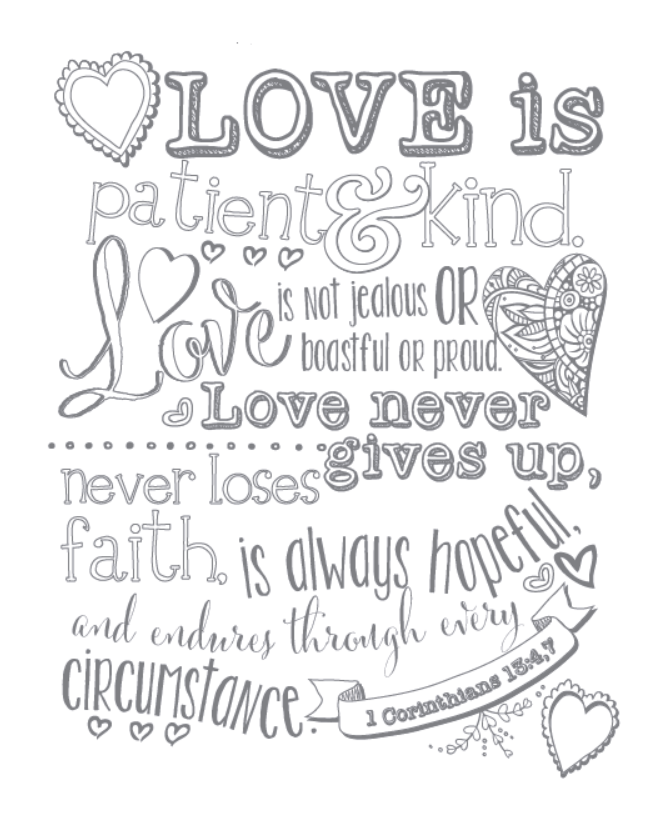 LOVE is
patient & kind.
Love is not jealous OR
boastful or proud.
Love never
gives up,
never loses
faith, is always hopeful,
and endures through every
circumstance.
1 Corinthians 13:4,7